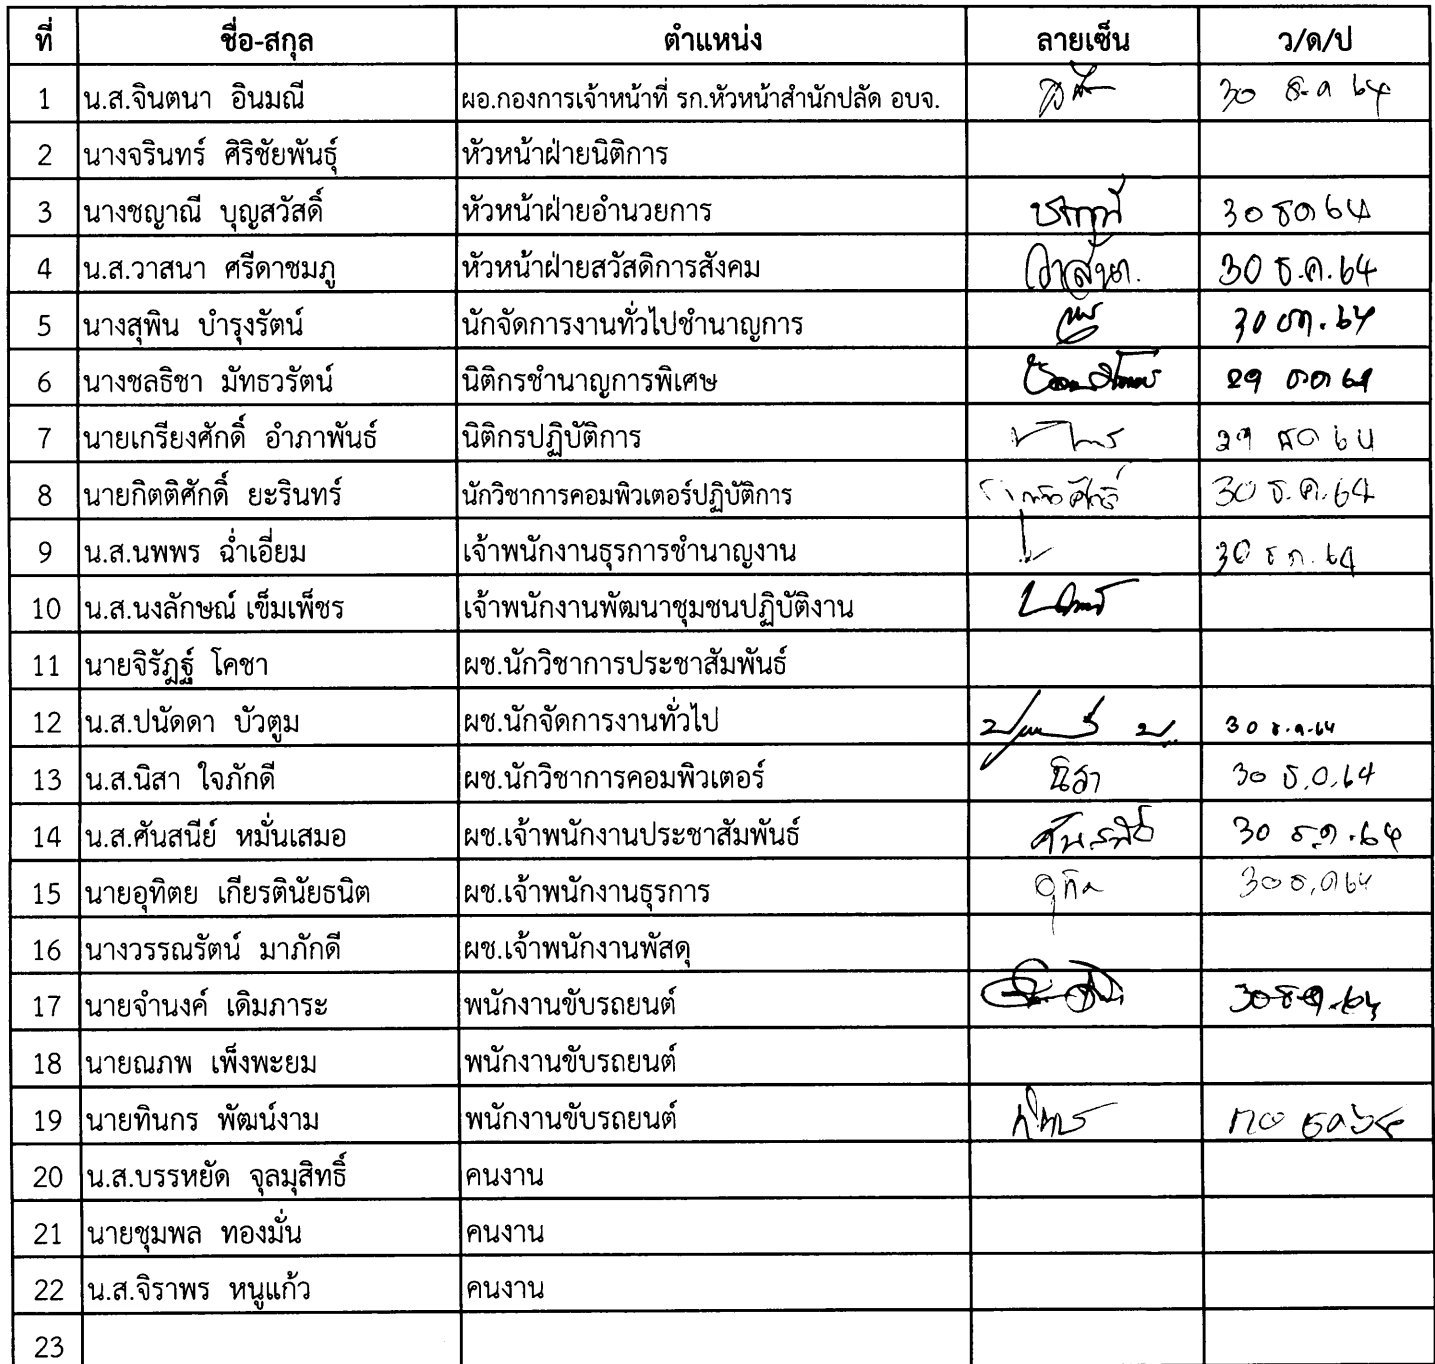 ที่ ชื่อ-สกุล ตำแหน่ง ลายเซ็น ว/ด/ป
1 น.ส.จินตนา อินมณี ผอ.กองการเจ้าหน้าที่ รก.หัวหน้าสำนักปลัด อบจ. 30 ธ.ค 64
2 นางจรินทร์ ศิริชัยพันธุ์ หัวหน้าฝ่ายนิติการ
3 นางชญาณี บุญสวัสดิ์ หัวหน้าฝ่ายอำนวยการ 30 ธค 64
4 น.ส.วาสนา ศรีดาชมภู หัวหน้าฝ่ายสวัสดิการสังคม วาสนา. 30 ธ.ค.64
5 นางสุพิน บำรุงรัตน์ นักจัดการงานทั่วไปชำนาญการ 30 ธค.64
6 นางชลธิชา มัทธวรัตน์ นิติกรชำนาญการพิเศษ 29 ธค 64
7 นายเกรียงศักดิ์ อำภาพันธ์ นิติกรปฏิบัติการ 29 ธค 64
8 นายกิตติศักดิ์ ยะรินทร์ นักวิชาการคอมพิวเตอร์ปฏิบัติการ 30 ธ.ค.64
9 น.ส.นพพร ฉ่ำเอี่ยม เจ้าพนักงานธุรการชำนาญงาน 30 ธ ค. 64
10 น.ส.นงลักษณ์ เข็มเพ็ชร เจ้าพนักงานพัฒนาชุมชนปฏิบัติงาน
11 นายจิรัฎฐ์ โคชา ผช.นักวิชาการประชาสัมพันธ์
12 น.ส.ปนัดดา บัวตูม ผช.นักจัดการงานทั่วไป 30 ธ.ค.64
13 น.ส.นิสา ใจภักดี ผช.นักวิชาการคอมพิวเตอร์ นิสา 30 ธ.ค.64
14 น.ส.ศันสนีย์ หมั่นเสมอ ผช.เจ้าพนักงานประชาสัมพันธ์ ศันสนีย์ 30 ธค.64
15 นายอุทิตย เกียรตินัยธนิต ผช.เจ้าพนักงานธุรการ 30 ธ.ค64
16 นางวรรณรัตน์ มาภักดี ผช.เจ้าพนักงานพัสดุ
17 นายจำนงค์ เดิมภาระ พนักงานขับรถยนต์ 30 ธค.64
18 นายณภพ เพ็งพะยม พนักงานขับรถยนต์
19 นายทินกร พัฒน์งาม พนักงานขับรถยนต์
20 น.ส.บรรหยัด จุลมุสิทธิ์ คนงาน
21 นายชุมพล ทองมั่น คนงาน
22 น.ส.จิราพร หนูแก้ว คนงาน
23